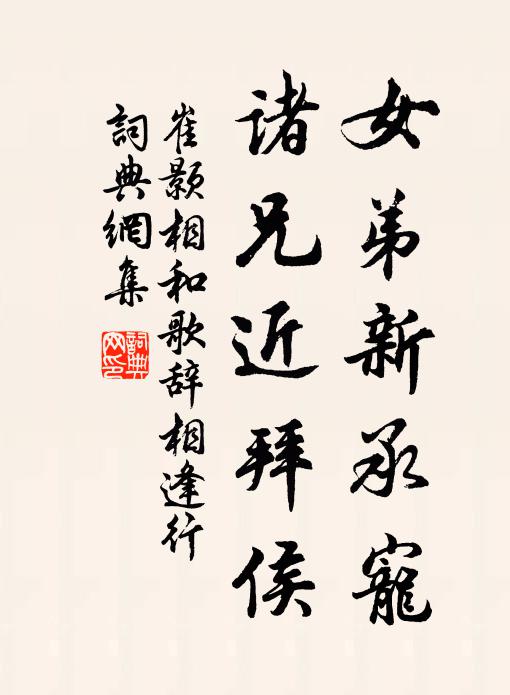 女弟新承寵
诸兄近拜侯
崔颢相和歌辞相逢行
詞典網集
詞典網印